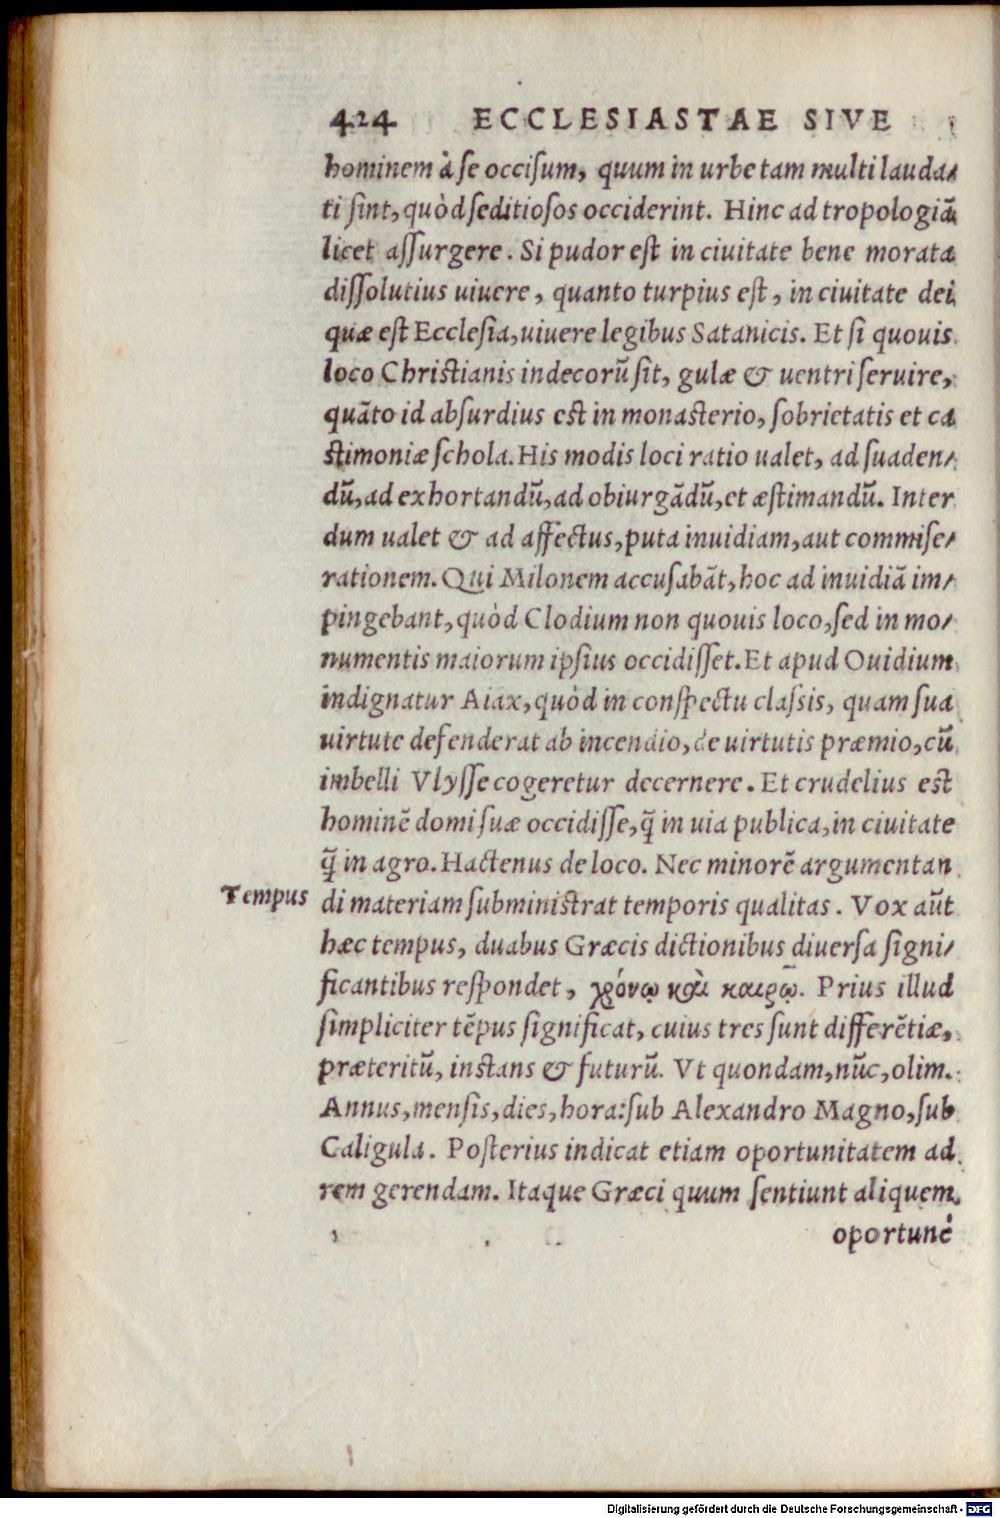 424 ECCLESIASTAE SIVE
hominem à se occisum, quum in urbe tam multi lauda/
ti sint, quòd seditiosos occiderint. Hinc ad tropologiã
licet assurgere. Si pudor est in ciuitate bene morata
dissolutius uiuere, quanto turpius est, in ciuitate dei
quæ est Ecclesia, uiuere legibus Satanicis. Et si quouis
loco Christianis indecorũ sit, gulæ & uentri seruire,
quãto id absurdius est in monasterio, sobrietatis et ca
stimoniæ schola. His modis loci ratio ualet, ad suaden/
dũ, ad exhortandũ, ad obiurgãdũ, et æstimandũ. Inter
dum ualet & ad affectus, puta inuidiam, aut commise/
rationem. Qui Milonem accusabãt, hoc ad inuidiã im/
pingebant, quòd Clodium non quouis loco, sed in mo/
numentis maiorum ipsius occidisset. Et apud Ouidium
indignatur Aiax, quòd in conspectu classis, quam sua
uirtute defenderat ab incendio, de uirtutis præmio, cũ
imbelli Vlysse cogeretur decernere. Et crudelius est
hominẽ domi suæ occidisse, q̃ in uia publica, in ciuitate
q̃ in agro. Hactenus de loco. Nec minorẽ argumentan
Tempus
di materiam subministrat temporis qualitas. Vox aũt
hæc tempus, duabus Græcis dictionibus diuersa signi/
ficantibus respondet, χρόνῳ καὶ καιρῷ. Prius illud
simpliciter tẽpus significat, cuius tres sunt differẽtiæ,
præteritũ, instans & futurũ. Vt quondam, nũc, olim.
Annus, mensis, dies, hora: sub Alexandro Magno, sub
Caligula. Posterius indicat etiam oportunitatem ad
rem gerendam. Itaque Græci quum sentiunt aliquem
oportunè
Digitalisierung gefördert durch die Deutsche Forschungsgemeinschaft - DFG